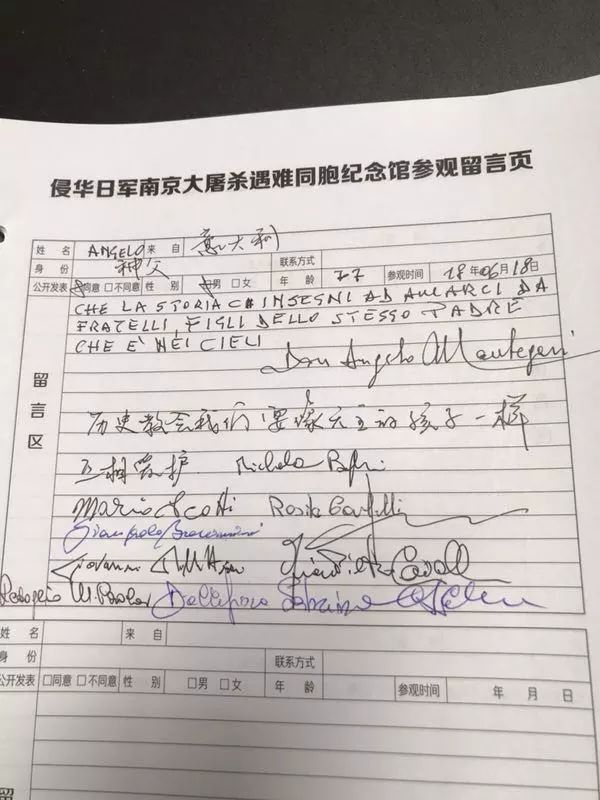 侵华日军南京大屠杀遇难同胞纪念馆参观留言页
姓 名 ANGELO 来 自 意大利
身 份 神父 联系方式
公开发表 □同意 □不同意 性 别 □男 □女 年 龄 77 参观时间 18年06月18日
留言区
CHE LA STORIA CI INSEGNI AD AMARCI DA
FRATELLI, FIGLI DELLO STESSO PADRE
CHE È NEI CIELI
Don Angelo
历史教会我们要像天主的孩子一样
互相爱护.
Mario Rosita
姓 名 来 自
身 份 联系方式
公开发表 □同意 □不同意 性 别 □男 □女 年 龄 参观时间 年 月 日
留